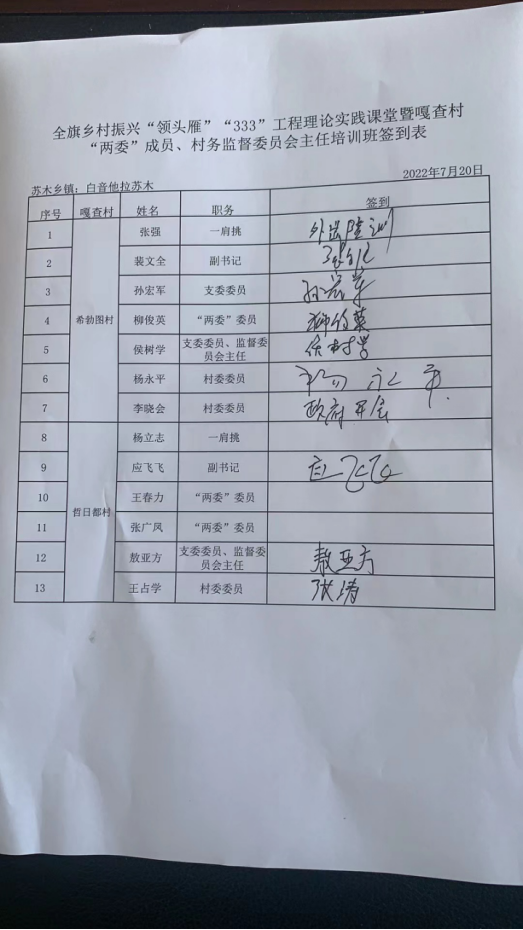 全旗乡村振兴“领头雁”“333”工程理论实践课堂暨嘎查村
“两委”成员、村务监督委员会主任培训班签到表
苏木乡镇：白音他拉苏木 2022年7月20日
序号 嘎查村 姓名 职务 签到
1 张强 一肩挑 外出培训
2 裴文全 副书记
3 孙宏军 支委委员 孙宏军
4 希勃图村 柳俊英 “两委”委员 柳俊英
5 侯树学 支委委员、监督委员会主任 侯树学
6 杨永平 村委委员 杨永平
7 李晓会 村委委员 政府开会
8 杨立志 一肩挑
9 应飞飞 副书记 应飞飞
10 哲日都村 王春力 “两委”委员
11 张广凤 “两委”委员
12 敖亚方 支委委员、监督委员会主任 敖亚方
13 王占学 村委委员